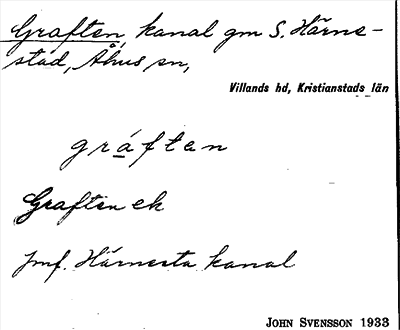 Graften, kanal gm S. Härne-
stad, Åhus sn,
Villands hd, Kristianstads län
gráftan
Graften ek
Jmf. Härnesta kanal
JOHN SVENSSON 1933